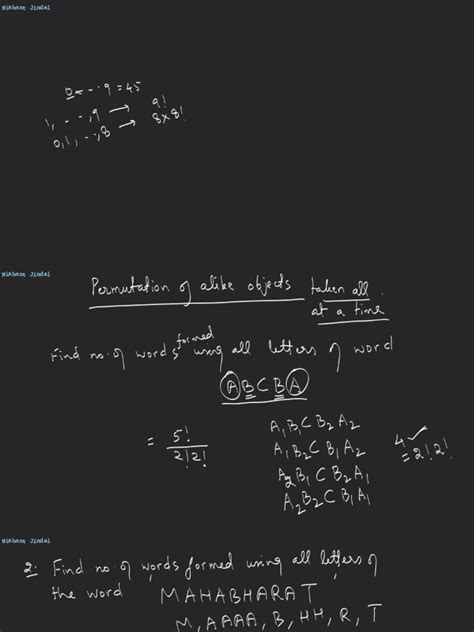 Nishant Jindal
0+ - - 9 = 45
1, - - -, 9 → 9!
0,1, - -, 8 → 8×8!
Nishant Jindal
Permutation of alike objects taken all
at a time
Find no. of words formed using all letters of word
ABCBA
= 5! / 2!2!
A₁B₁CB₂A₂
A₁B₂CB₁A₂
A₂B₁CB₂A₁
A₂B₂CB₁A₁
4 ✓
= 2!2!
Nishant Jindal
2. Find no. of words formed using all letters of
the word MAHABHARAT
M, AAAA, B, HH, R, T